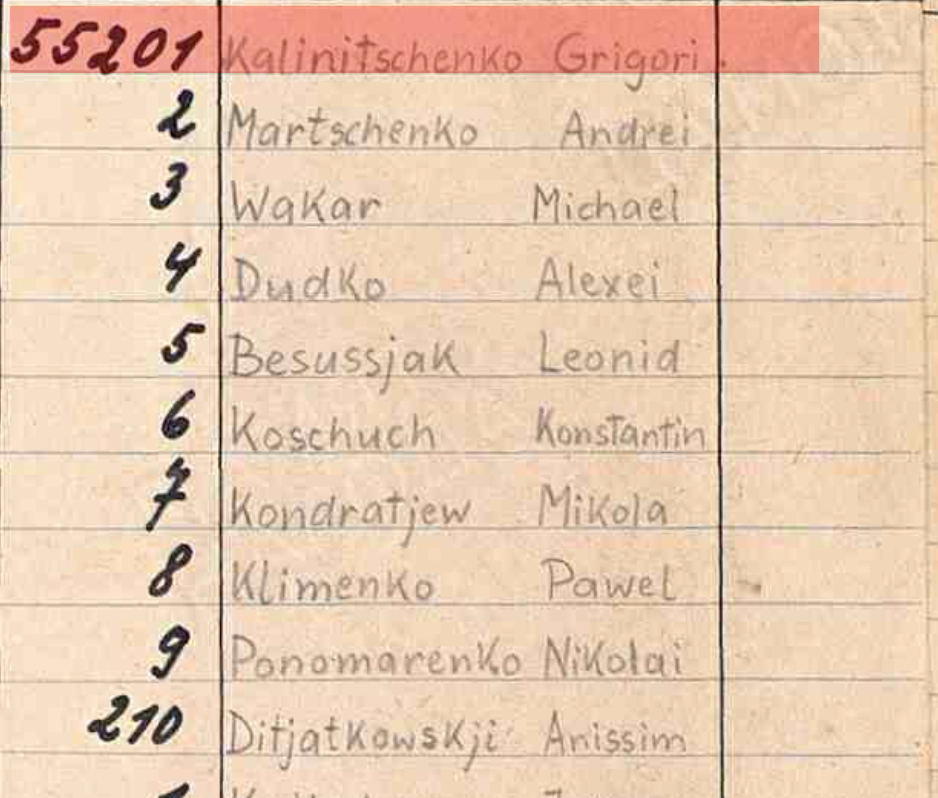 55201 Kalinitschenko Grigori.
2 Martschenko Andrei
3 Wakar Michael
4 Dudko Alexei
5 Besussjak Leonid
6 Koschuch Konstantin
7 Kondratjew Mikola
8 Klimenko Pawel
9 Ponomarenko Nikolai
210 Ditjatkowskji Anissim